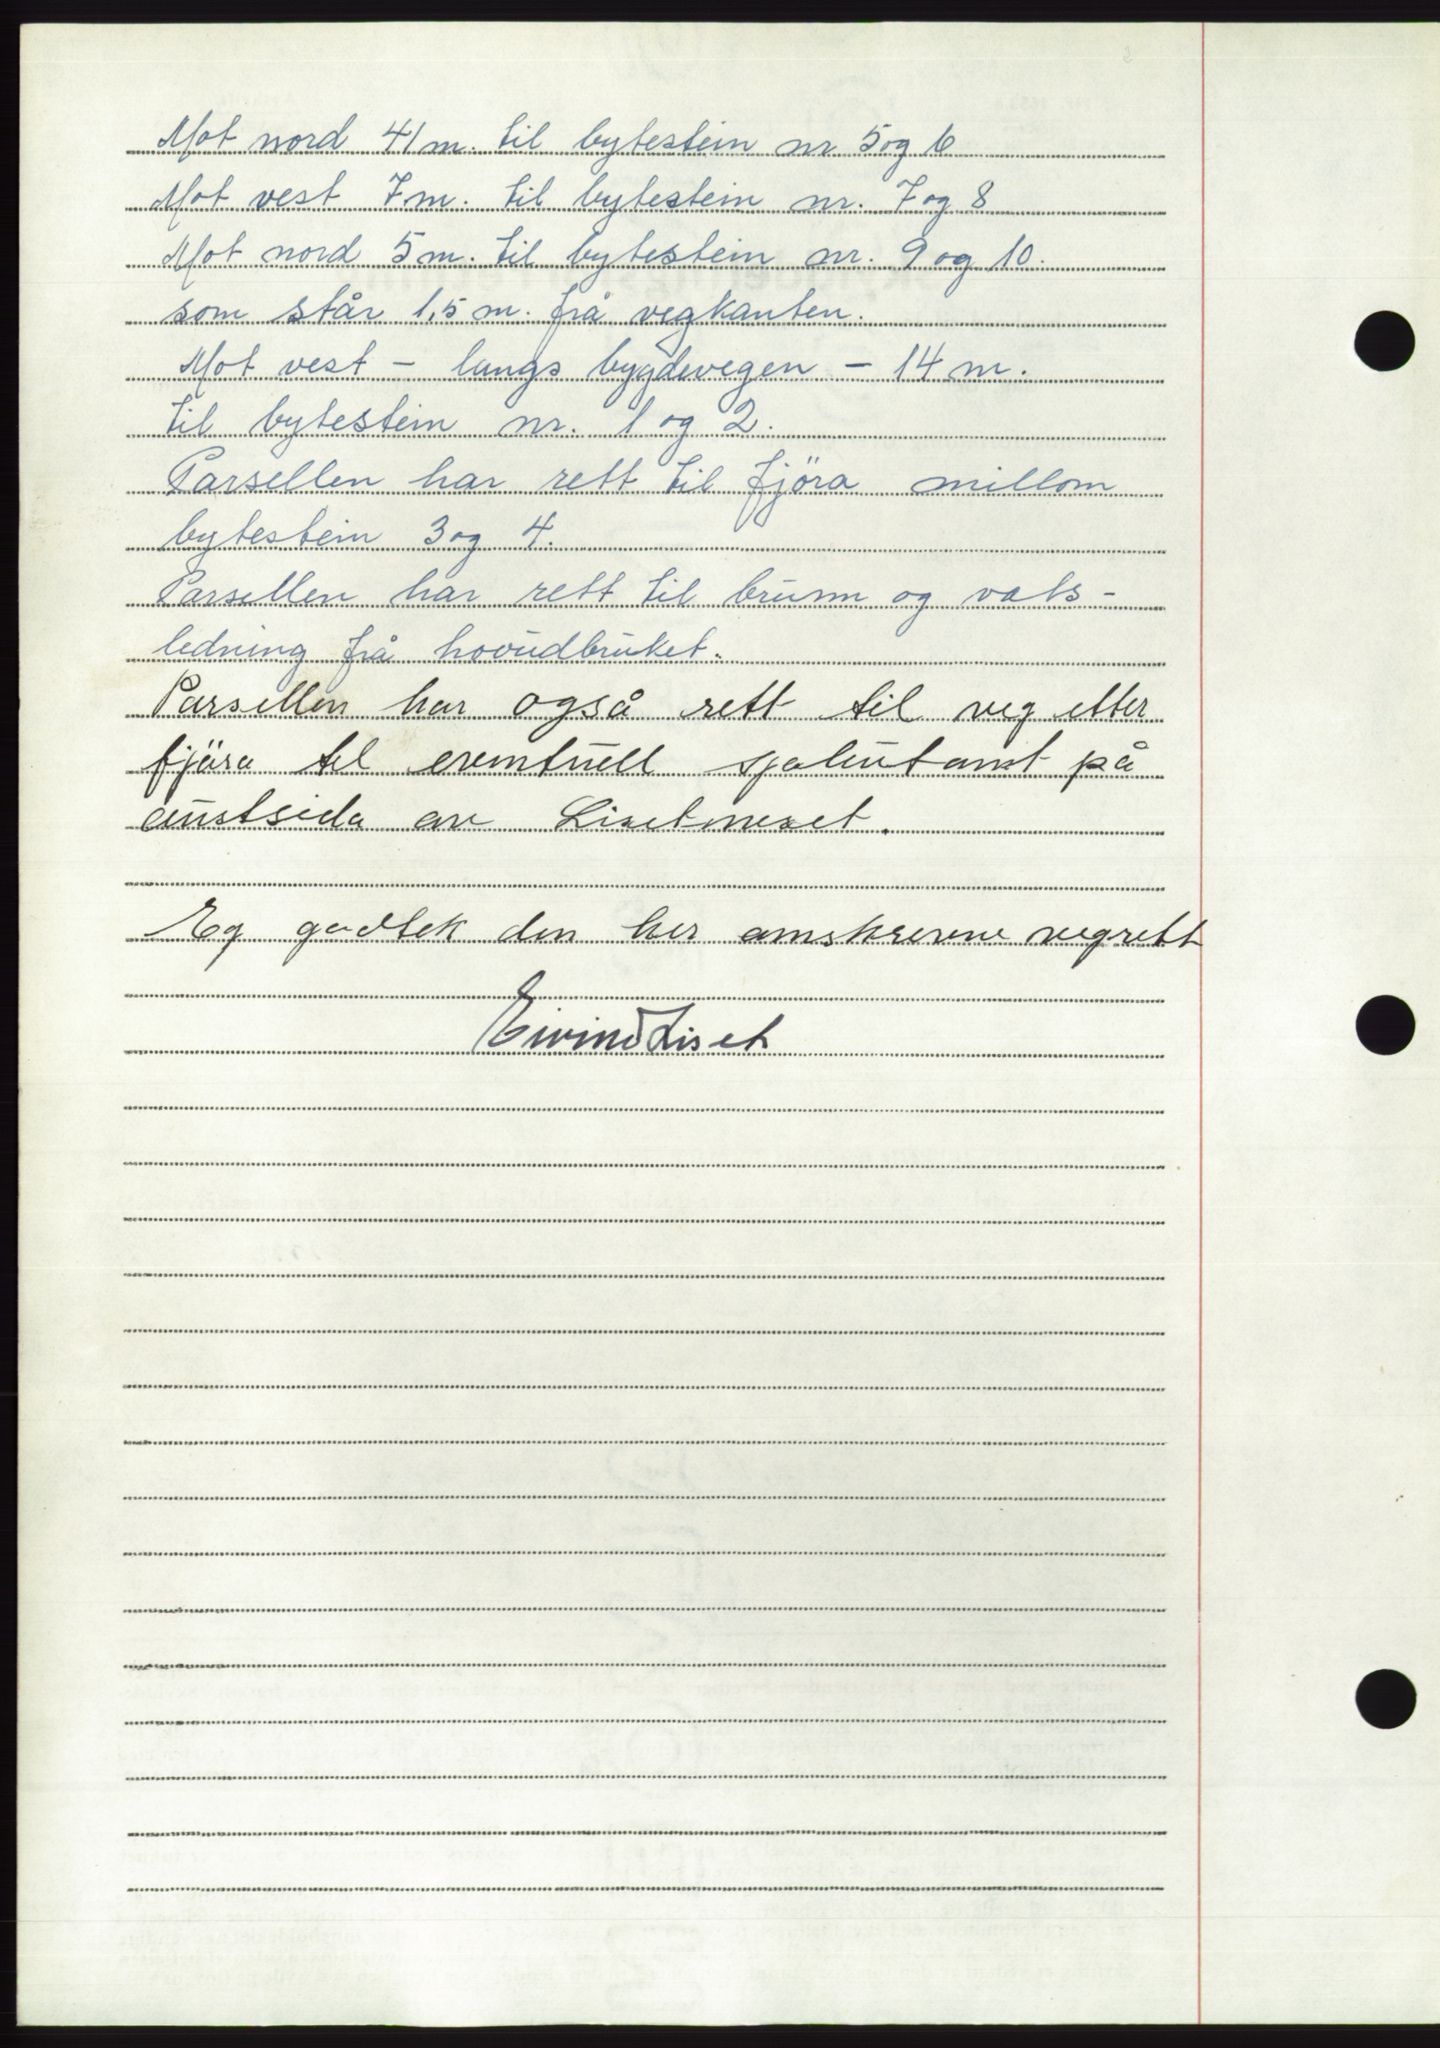 Mot nord 41 m. til bytestein nr 5 og 6
Mot vest 7 m. til bytestein nr. 7 og 8
Mot nord 5 m. til bytestein nr. 9 og 10.
som står 1,5 m. frå vegkanten.
Mot vest - langs bygdevegen - 14 m.
til bytestein nr. 1 og 2.
Parsellen har rett til fjöra millom
bytestein 3 og 4.
Parsellen har rett til brunn og vats-
ledning frå hovudbruket.
Parsellen har også rett til veg etter
fjöra til eventuell på
austsida av Lisetneset.
Eg godtek den her omskrevne vegrett
Eivind Liset